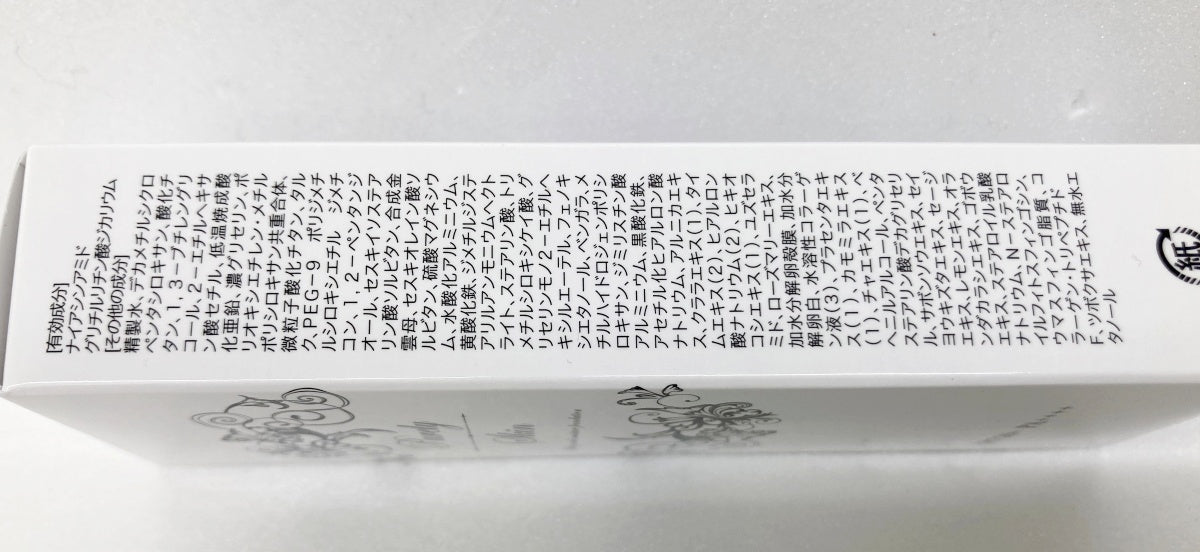 [有効成分]
ナイアシンアミド
グリチルリチン酸ジカリウム
[その他の成分]
精製水、デカメチルシクロ
ペンタシロキサン、酸化チ
タン、1,3-ブチレングリ
コール、2-エチルヘキサ
ン酸セチル、低温焼成酸
化亜鉛、濃グリセリン、ポ
リオキシエチレン・メチル
ポリシロキサン共重合体、
微粒子酸化チタン、タル
ク、PEG-9 ポリジメチ
ルシロキシエチル ジメチ
コン、1,2-ペンタンジ
オール、セスキイソステア
リン酸ソルビタン、合成金
雲母、セスキオレイン酸ソ
ルビタン、硫酸マグネシウ
ム、水酸化アルミニウム、
黄酸化鉄、ジメチルジステ
アリルアンモニウムヘクト
ライト、ステアリン酸、トリ
メチルシロキシケイ酸、グ
リセリンモノ2-エチルヘ
キシルエーテル、フェノキ
シエタノール、ベンガラ、メ
チルハイドロジェンポリシ
ロキサン、ジミリスチン酸
アルミニウム、黒酸化鉄、
アセチル化ヒアルロン酸
ナトリウム、アルニカエキ
ス、クララエキス(1)、タイ
ムエキス(2)、ヒアルロン
酸ナトリウム(2)、ヒキオ
コシエキス(1)、ユズセラ
ミド、ローズマリーエキス、
加水分解卵殻膜、加水分
解卵白、水溶性コラーゲ
ン液(3)、プラセンタエキ
ス(1)、カモミラエキス
(1)、チャエキス(1)、ベ
ヘニルアルコール、ペンタ
ステアリン酸デカグリセリ
ル、サボンソウエキス、セイ
ヨウキズタエキス、セージ
エキス、レモンエキス、オラ
ンダカラシエキス、ゴボウ
エキス、ステアロイル乳酸
ナトリウム、N-ステアロ
イルフィトスフィンゴシン、
ウマスフィンゴ脂質、コ
ラーゲン・トリペプチド
F、ツボクサエキス、無水エ
タノール
紙
Skin